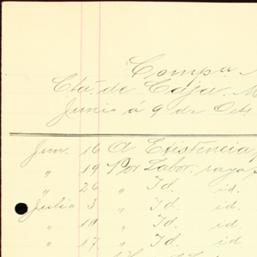 Compa.
Cta. de Caja.
Junio á 9 de Oct.
Jun. 16 A Existencia
" 19 Por Labor. raya
" 26 " Id. id.
Julio 3 " Id. id.
" 10 " Id. id.
" 17 " Id. id.